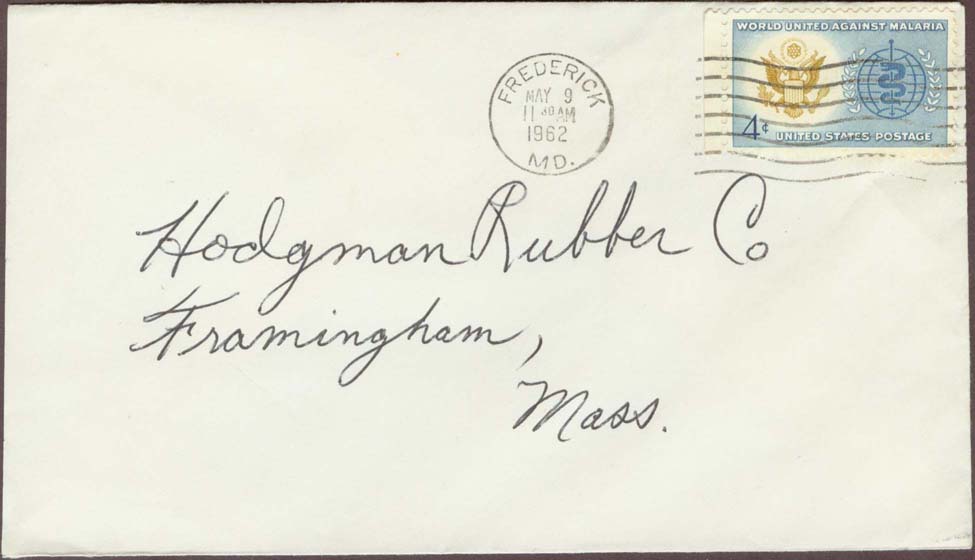 WORLD UNITED AGAINST MALARIA
4¢
UNITED STATES POSTAGE
FREDERICK
MAY 9
11 30 AM
1962
MD.
Hodgman Rubber Co
Framingham,
Mass.